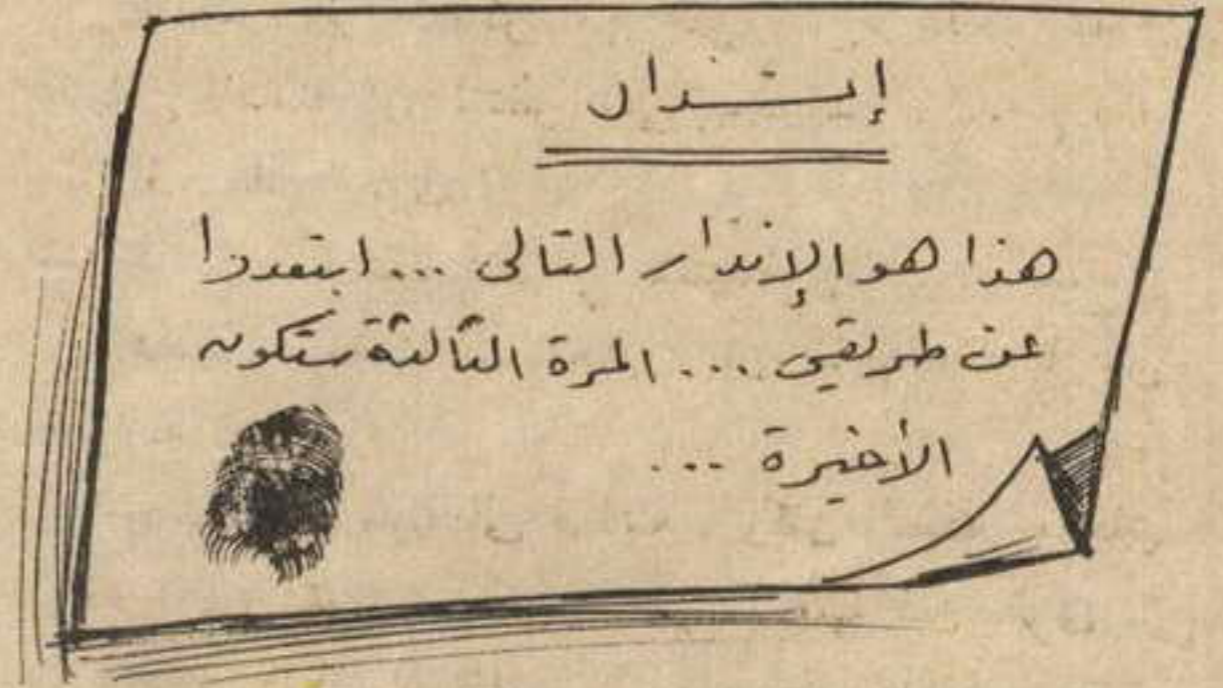 إنذار
هذا هو الإنذار التالى ... ابتعدوا
عن طريقى ... المرة الثالثة ستكون
الأخيرة ...